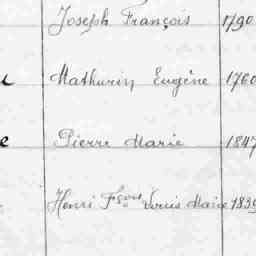 Joseph François 1790
Mathurin Eugène 1760
e Pierre Marie 1847
Henri Fçois Louis Marie 183